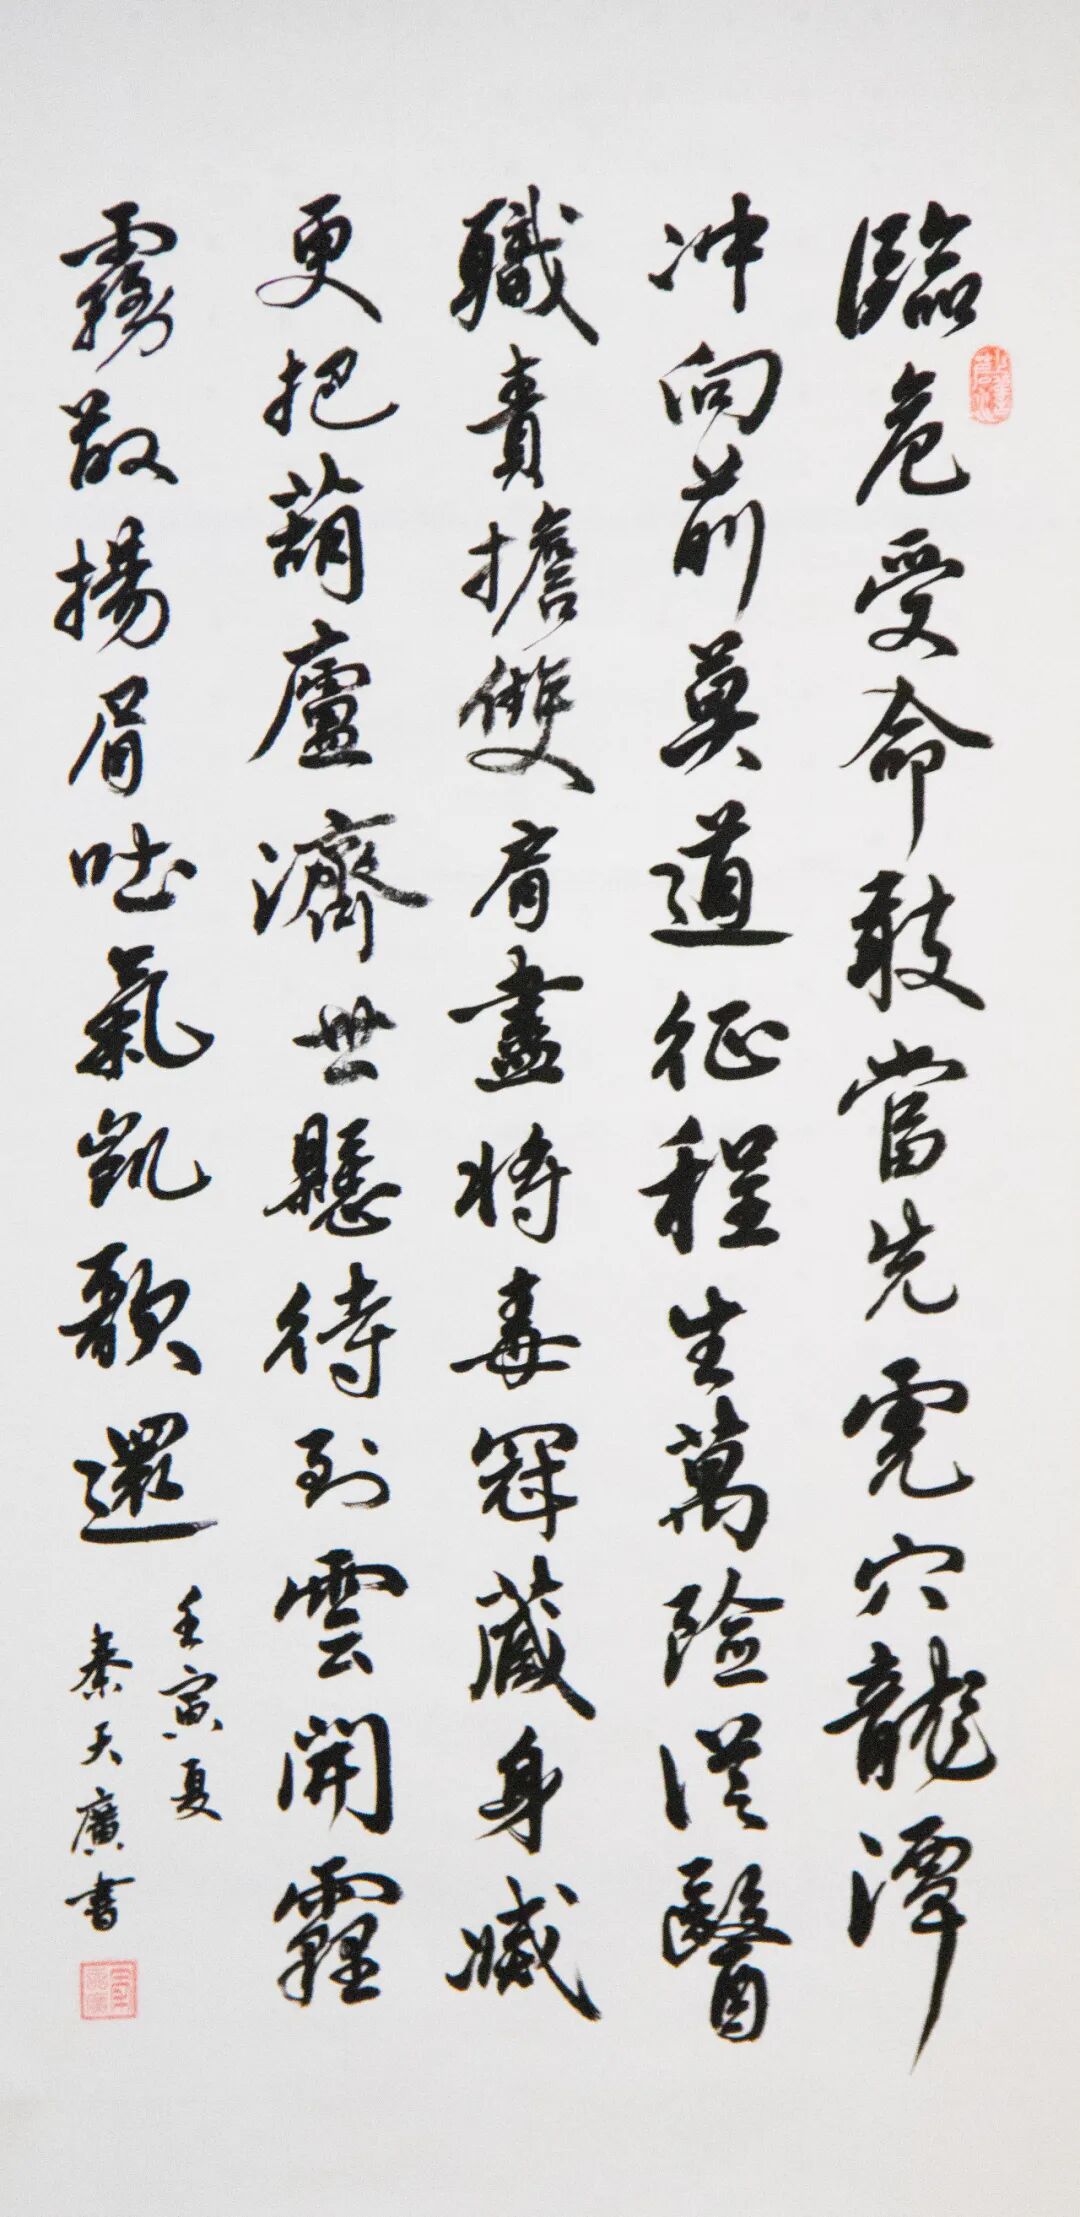 臨危受命敢當先虎穴龍潭
冲向前莫道征程生萬險從醫
職責擔雙肩盡將毒冠藏身滅
更把葫廬濟世懸待到雲開霾
霧散揚眉吐氣凱歌還
壬寅夏
秦天廣書